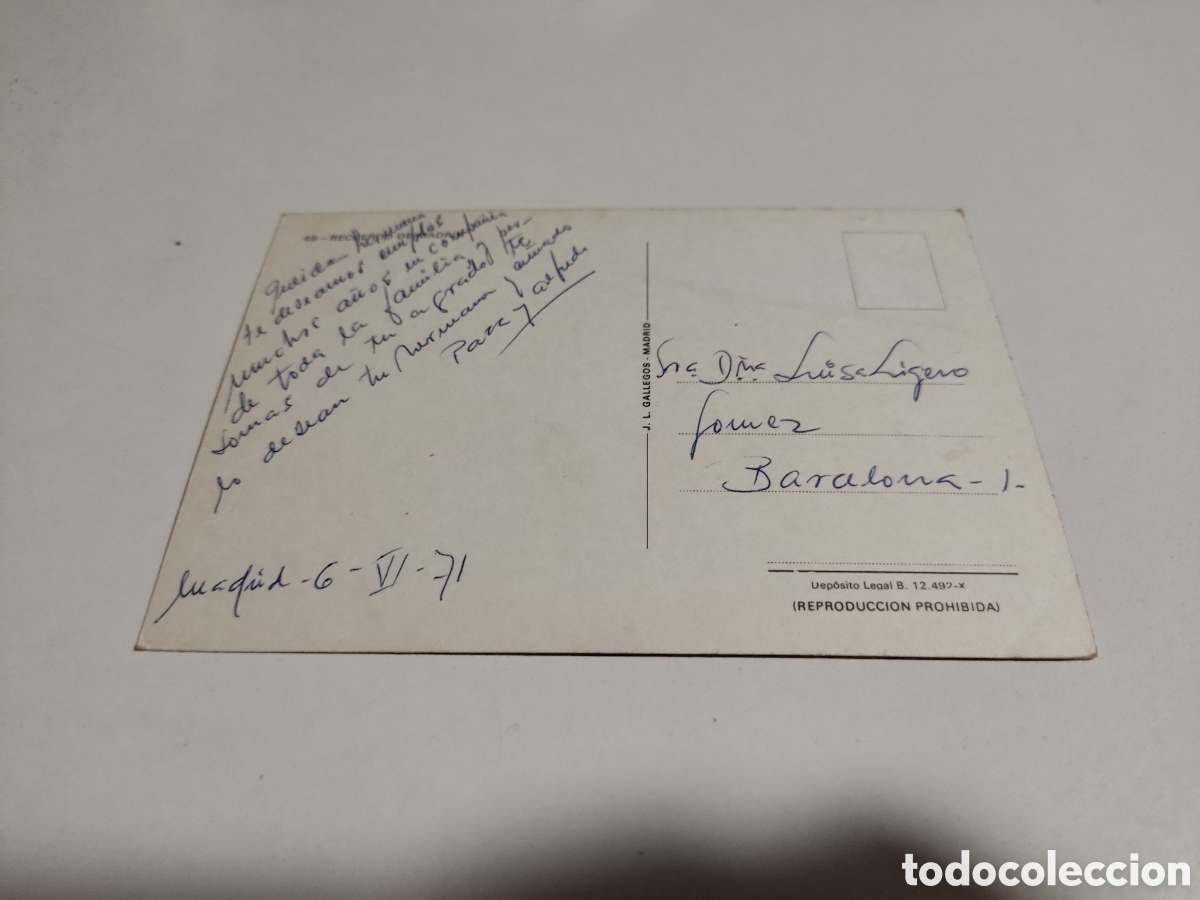 49 - RECUERDO DE MADRID
Querida Hermana
te deseamos cumplas
muchos años en compañia
de toda la familia y per-
sonas de tu agrado, te
lo desean tu hermana y cuñado
Paca y Alfredo
Madrid - 6 - VI - 71
J. L. GALLEGOS - MADRID
Sra Dña Luisa Ligero
Gomez
Barcelona - 1.
Depósito Legal B. 12.492-X
(REPRODUCCION PROHIBIDA)
todocoleccion